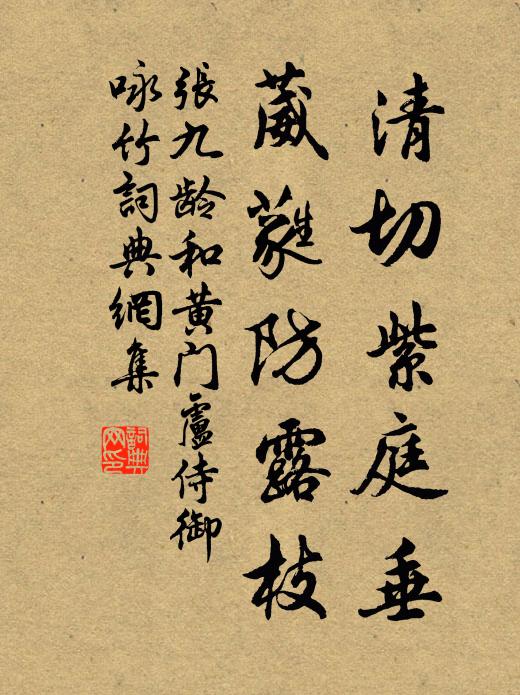 清切紫庭垂
葳蕤防露枝
張九龄和黄门盧侍御
咏竹詞典網集
詞典
网印